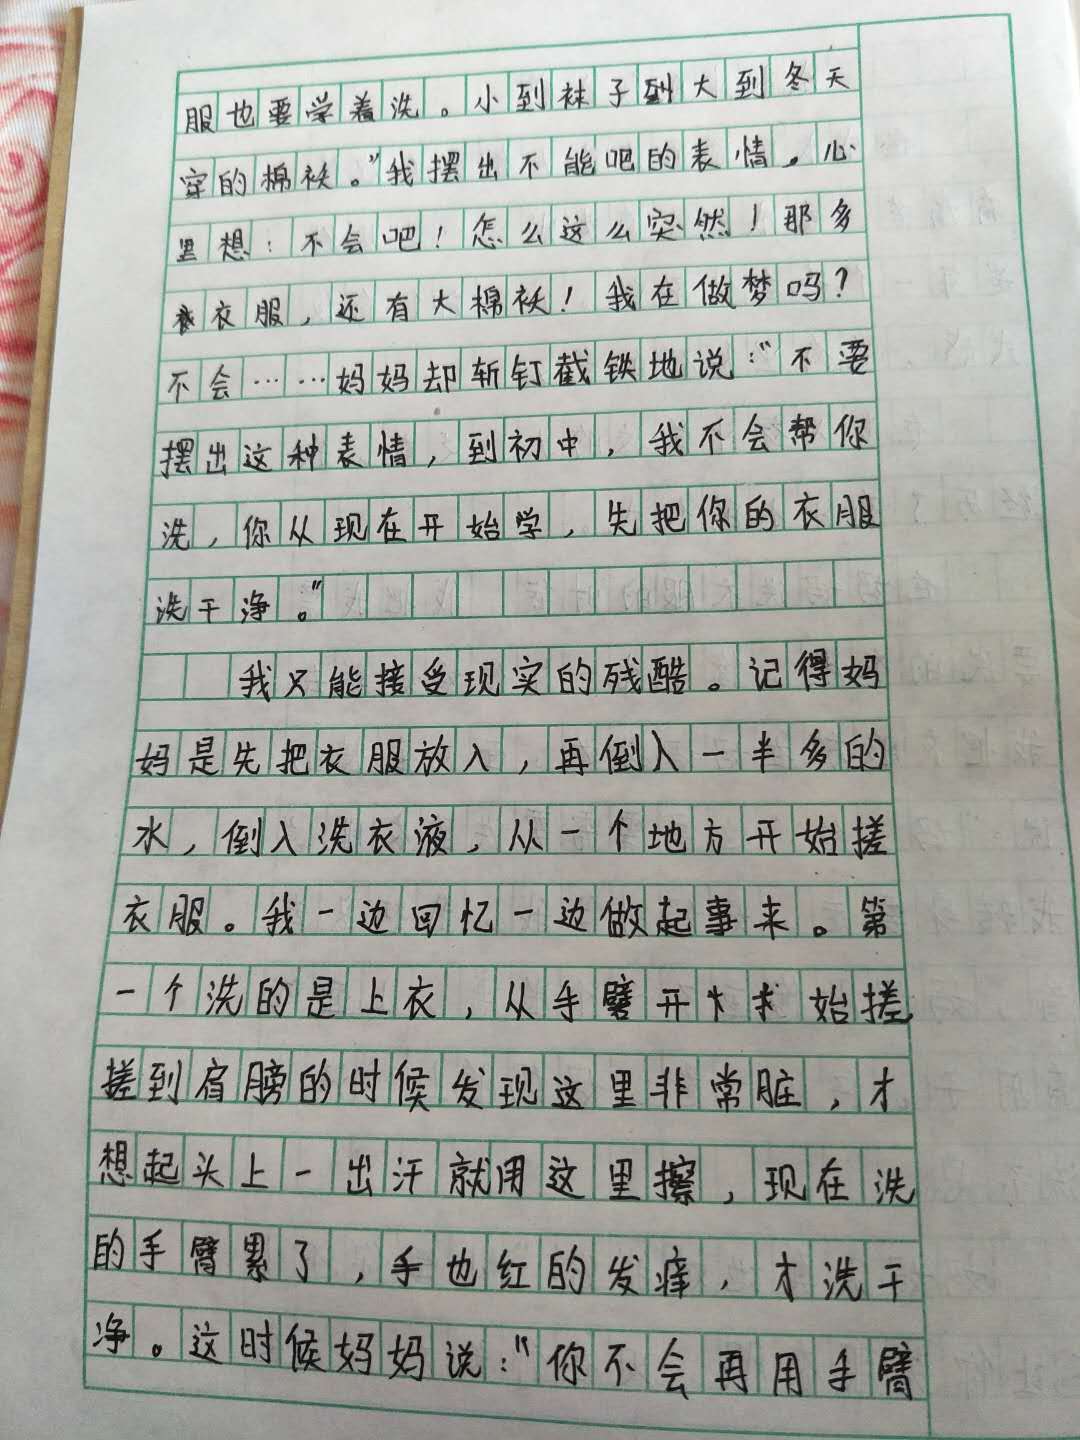 服也要学着洗。小到袜子到大到冬天
穿的棉袄。”我摆出不能吧的表情。心
里想：不会吧！怎么这么突然！那多
衣服，还有大棉袄！我在做梦吗？
不会……妈妈却斩钉截铁地说：“不要
摆出这种表情，到初中，我不会帮你
洗，你从现在开始学，先把你的衣服
洗干净。”
我只能接受现实的残酷。记得妈
妈是先把衣服放入，再倒入一半多的
水，倒入洗衣液，从一个地方开始搓
衣服。我一边回忆一边做起事来。第
一个洗的是上衣，从手臂开始搓
搓到肩膀的时候发现这里非常脏，才
想起头上一出汗就用这里擦，现在洗
的手臂累了，手也红的发痒，才洗干
净。这时候妈妈说：“你不会再用手臂